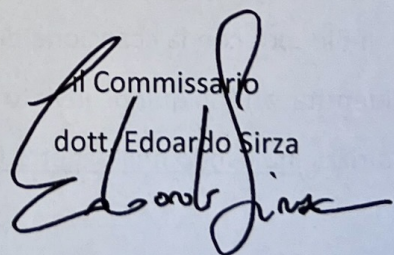 il Commissario
dott. Edoardo Sirza
Edoardo Sirza